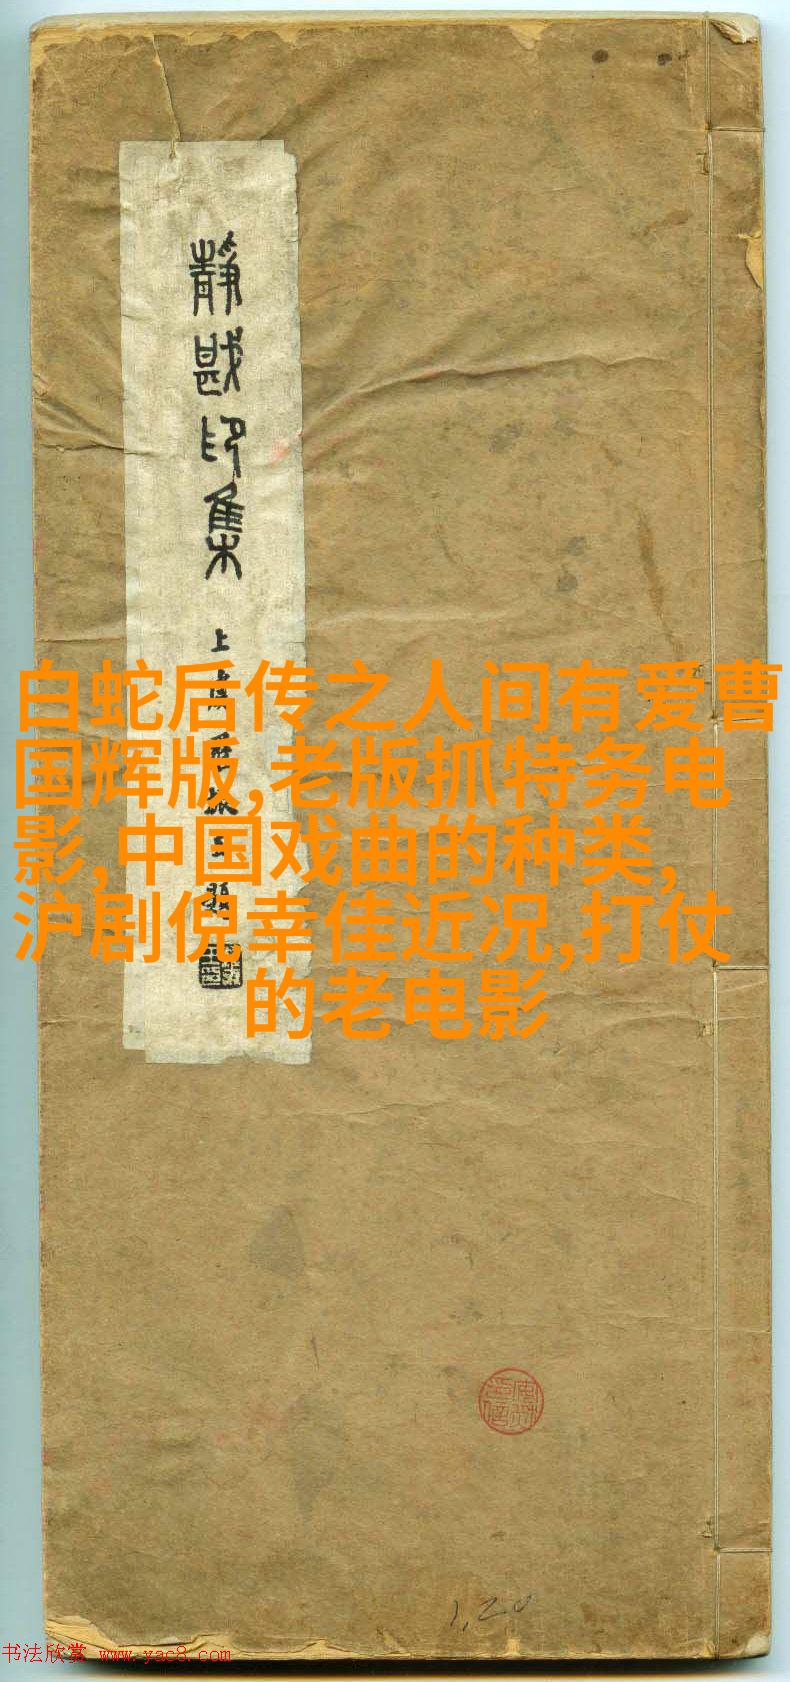 静戡印集
白蛇后传之人间有爱曹
国辉版,老版抓特务电
影,中国戏曲的种类,
沪剧倪幸佳近况,打仗
的老电影
1,20
书法欣赏 www.yac8.com